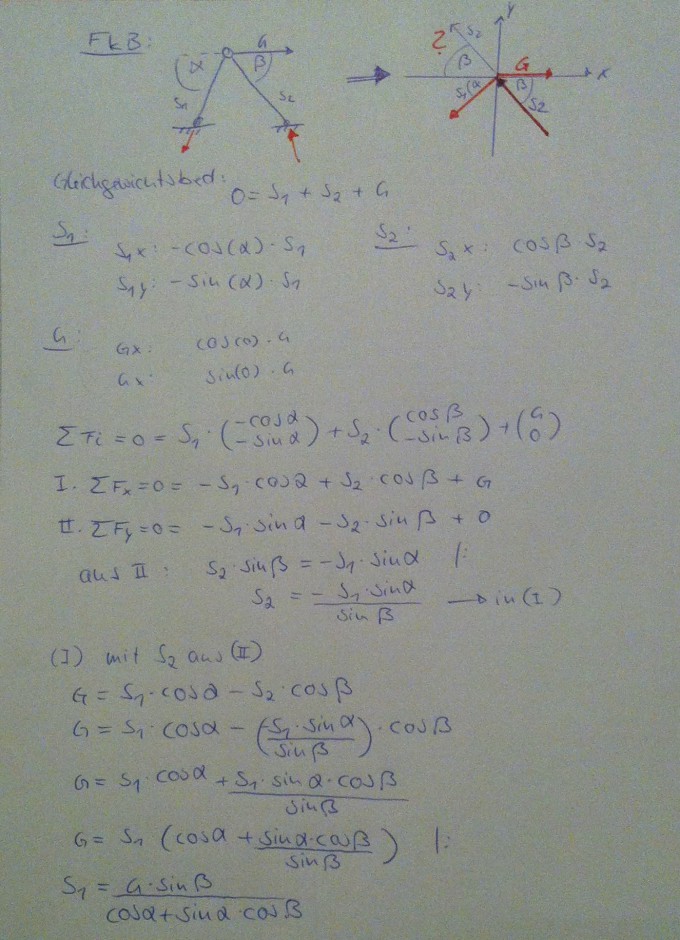 FkB:
α G β S1 S2
⇒
y
? S2 β G x
S1 α β S2
Gleichgewichtsbed:
0 = S1 + S2 + G
S1: S2:
S1x: -cos(α)·S1 S2x: cosβ·S2
S1y: -sin(α)·S1 S2y: -sinβ·S2
G:
Gx: cos(0)·G
Gx: sin(0)·G
ΣFi = 0 = S1·(-cosα -sinα) + S2·(cosβ -sinβ) + (G 0)
I. ΣFx=0= -S1·cosα + S2·cosβ + G
II. ΣFy=0= -S1·sinα - S2·sinβ + 0
aus II: S2·sinβ = -S1·sinα |:
S2 = -S1·sinα / sinβ → in(I)
(I) mit S2 aus (II)
G = S1·cosα - S2·cosβ
G = S1·cosα - (-S1·sinα / sinβ)·cosβ
G = S1·cosα + S1·sinα·cosβ / sinβ
G = S1 (cosα + sinα·cosβ / sinβ) |:
S1 = G·sinβ / cosα+sinα·cosβ